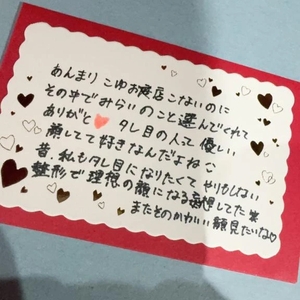 あんまりこゆお店こないのに
その中でみらいのこと選んでくれて
ありがと♥ タレ目の人って優しい
顔してて好きなんだよね〜
昔、私もタレ目になりたくてやりもしない
整形で理想の顔になる妄想してた笑
またそのかわいい顔見たいな♡